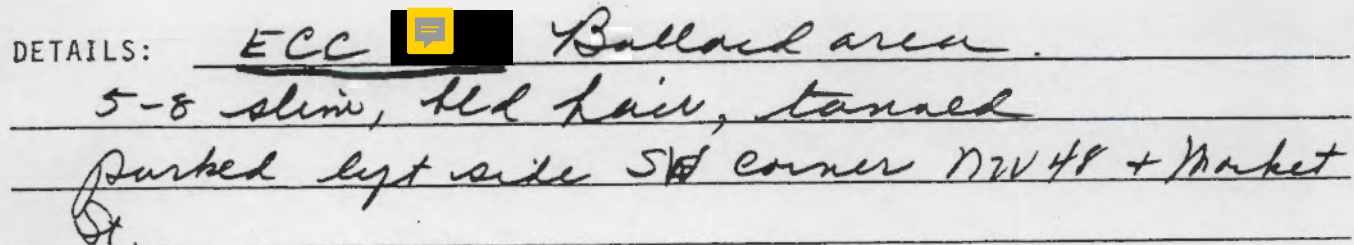 DETAILS: ECC Ballard area.
5-8 slim, bld hair, tanned
parked left side SW corner NW 48 + Market
St.